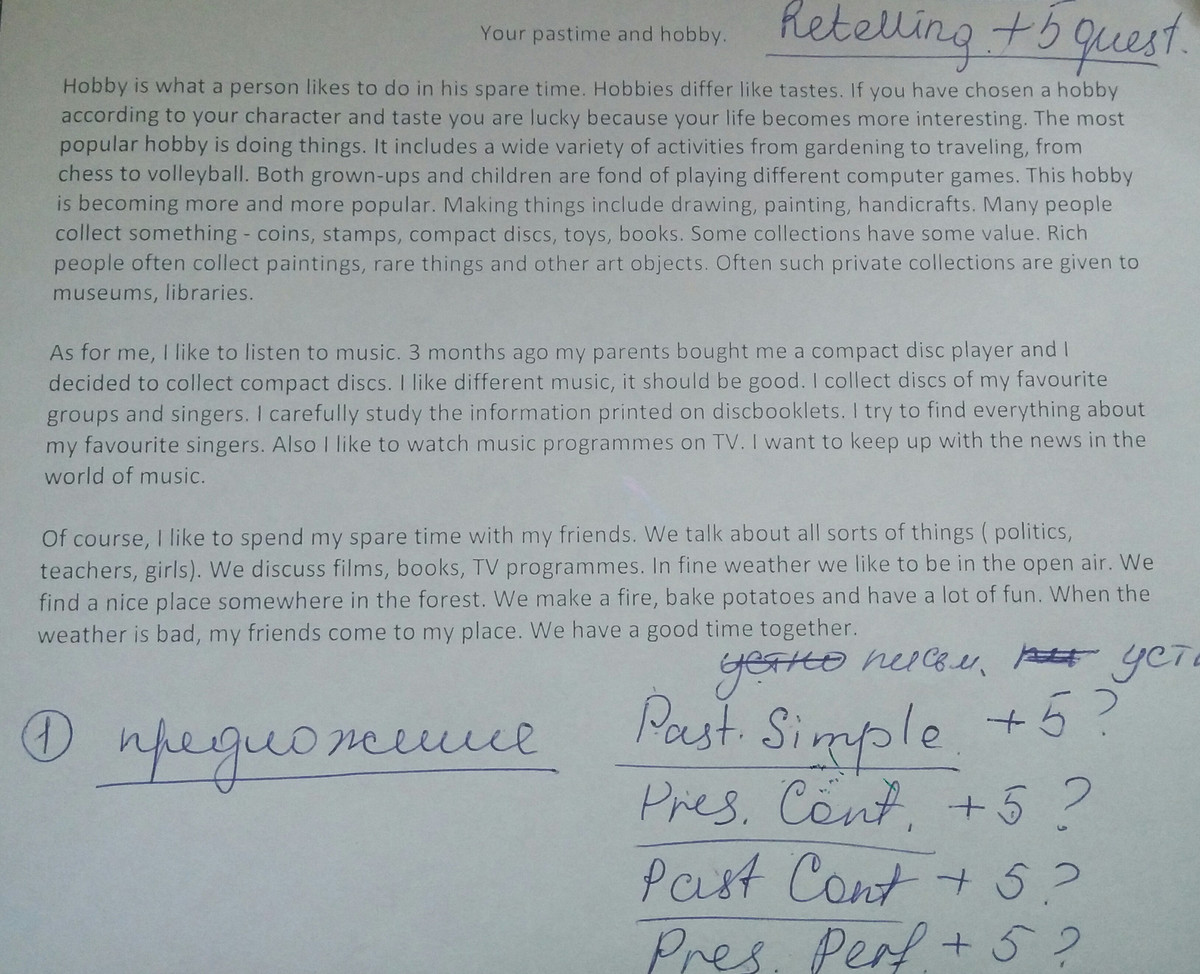 Your pastime and hobby.
Retelling + 5 quest.
Hobby is what a person likes to do in his spare time. Hobbies differ like tastes. If you have chosen a hobby
according to your character and taste you are lucky because your life becomes more interesting. The most
popular hobby is doing things. It includes a wide variety of activities from gardening to traveling, from
chess to volleyball. Both grown-ups and children are fond of playing different computer games. This hobby
is becoming more and more popular. Making things include drawing, painting, handicrafts. Many people
collect something - coins, stamps, compact discs, toys, books. Some collections have some value. Rich
people often collect paintings, rare things and other art objects. Often such private collections are given to
museums, libraries.
As for me, I like to listen to music. 3 months ago my parents bought me a compact disc player and I
decided to collect compact discs. I like different music, it should be good. I collect discs of my favourite
groups and singers. I carefully study the information printed on discbooklets. I try to find everything about
my favourite singers. Also I like to watch music programmes on TV. I want to keep up with the news in the
world of music.
Of course, I like to spend my spare time with my friends. We talk about all sorts of things ( politics,
teachers, girls). We discuss films, books, TV programmes. In fine weather we like to be in the open air. We
find a nice place somewhere in the forest. We make a fire, bake potatoes and have a lot of fun. When the
weather is bad, my friends come to my place. We have a good time together.
устно письм. уст
1 предложение
Past. Simple. + 5 ?
Pres. Cont. + 5 ?
Past Cont + 5 ?
Pres. Perf. + 5 ?